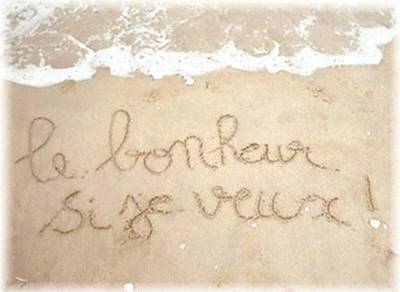 le bonheur
si je veux !